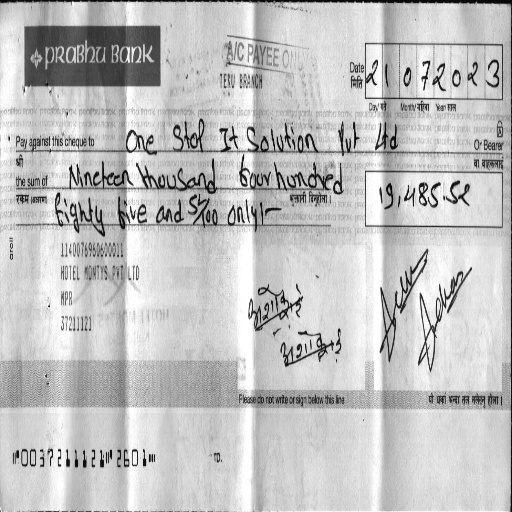 PRABHU BANK
A/C PAYEE ON
TEKU BRANCH
Date
मिति
21 07 2023
Day/ गते Month/ महिना Year साल
Pay against this cheque to One Stop It Solution Pvt Ltd Or Bearer
श्री वा वाहकलाई
the sum of Nineteen thousand four hundred
रकम (अक्षरूपी भुक्तानी दिनुहोला।
Eighty five and 52/100 only/-
19,485.52
1140076960600011
HOTEL MONTYS PVT LTD
NPR
37211121
Please do not write or sign below this line
यो धर्का भन्दा तल नलेख्नु होला।
⑈0037211121⑈2601⑈
TD.